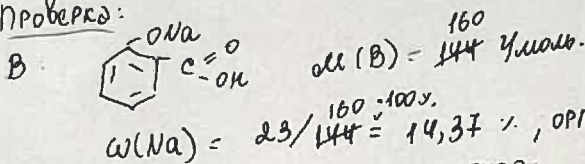 Проверка:
B: ONa C=O -OH M(B) = 144 160 г/моль.
ω(Na) = 23/144 160 ·100% = 14,37 %,